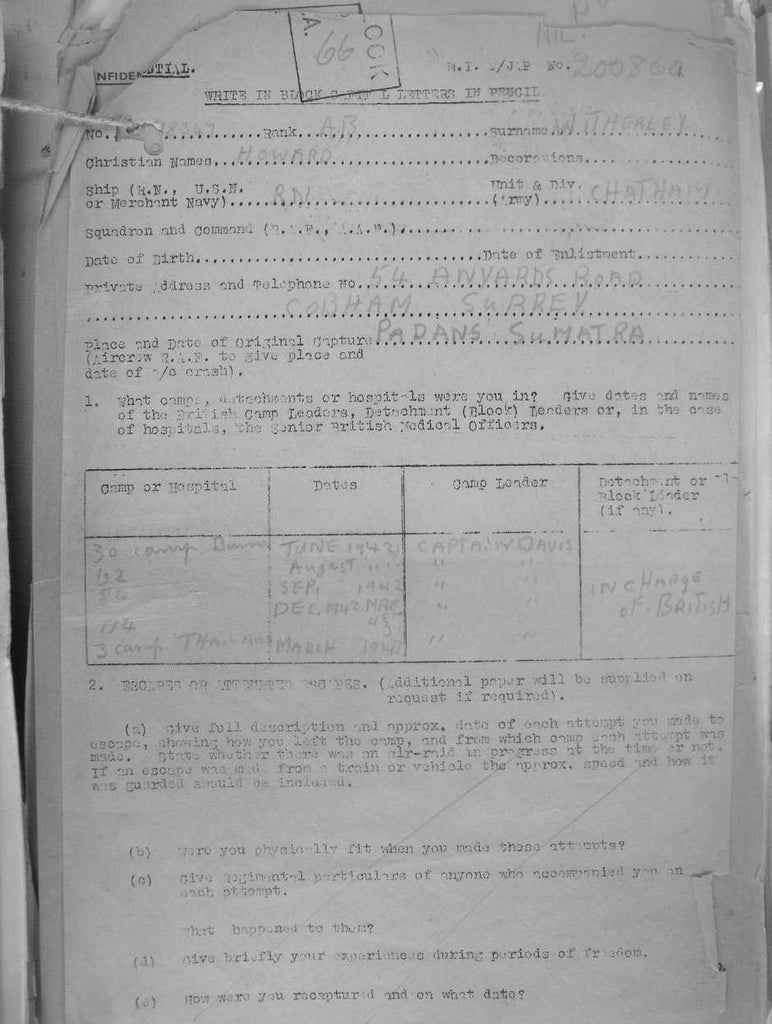 COOK
A. 66
NIL
NFIDENTIAL. M.I. 9/JAP No. 200860
WRITE IN BLOCK CAPITAL LETTERS IN PENCIL
No. Rank AB Surname WITHERLEY
Christian Names HOWARD Decorations
Ship (R.N., U.S.N. Unit & Div.
or Merchant Navy) RN (Army) CHATHAM
Squadron and Command (R.A.F., A.A.F.)
Date of Birth Date of Enlistment
Private Address and Telephone No. 54 ANYARDS ROAD
COBHAM SURREY
Place and Date of Original Capture PADANG SUMATRA
(Aircrew R.A.F. to give place and
date of a/c crash).
1. What camps, detachments or hospitals were you in? Give dates and names
of the British Camp Leaders, Detachment (Block) Leaders or, in the case
of hospitals, the Senior British Medical Officers.
Camp or Hospital Dates Camp Leader Detachment or
Block Leader
(if any).
30 camp Burma JUNE 1942 CAPTAIN DAVIS
August " " "
SEP, 1942 " " IN CHARGE
DEC. 1942 MAR " " OF BRITISH
114
3 camp THAILAND MARCH " "
2. ESCAPES OR ATTEMPTED ESCAPES. (Additional paper will be supplied on
request if required).
(a) Give full description and approx. date of each attempt you made to
escape, showing how you left the camp, and from which camp each attempt was
made. State whether there was an air-raid in progress at the time or not.
If an escape was made from a train or vehicle the approx. speed and how it
was guarded should be included.
(b) Were you physically fit when you made these attempts?
(c) Give Regimental particulars of anyone who accompanied you on
each attempt.
What happened to them?
(d) Give briefly your experiences during periods of freedom.
(e) How were you recaptured and on what date?